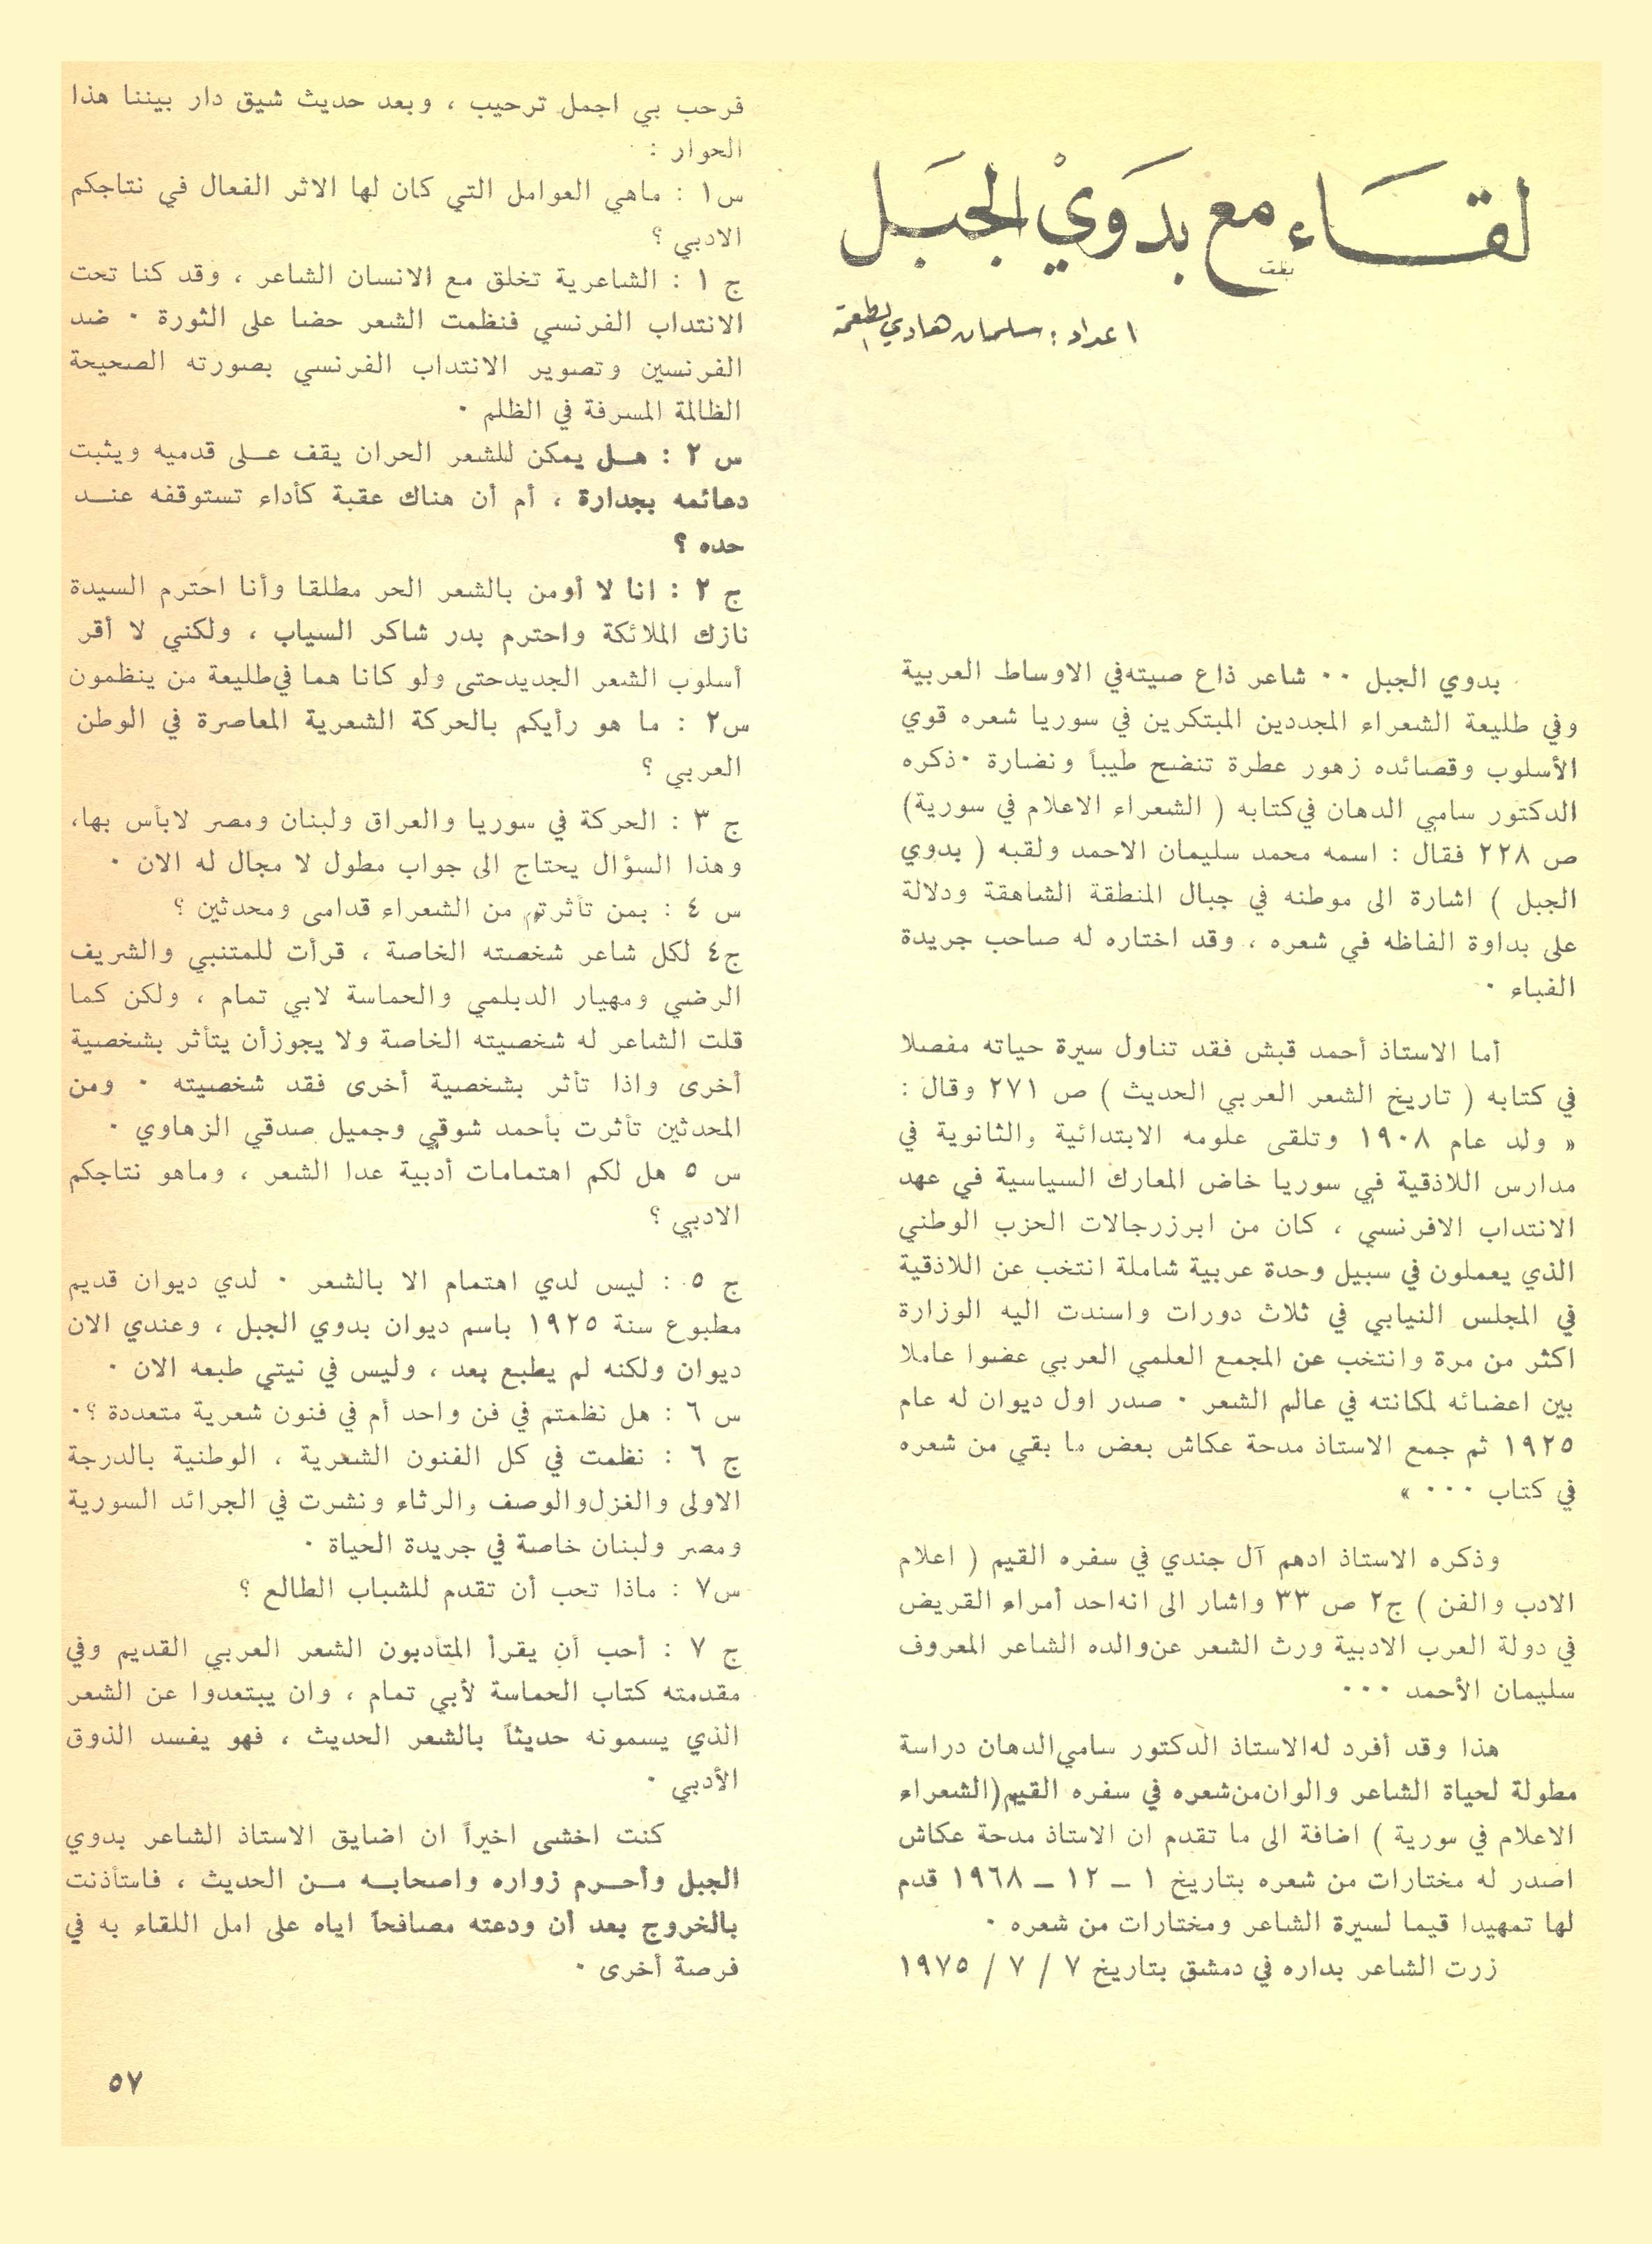 لقاء مع بدوي الجبل
اعداد : سلمان هادي الطعمة
بدوي الجبل ٠٠ شاعر ذاع صيته في الاوساط العربية
وفي طليعة الشعراء المجددين المبتكرين في سوريا شعره قوي
الأسلوب وقصائده زهور عطرة تنضح طيباً ونضارة ٠ ذكره
الدكتور سامي الدهان في كتابه ( الشعراء الاعلام في سورية )
ص ٢٢٨ فقال : اسمه محمد سليمان الاحمد ولقبه ( بدوي
الجبل ) اشارة الى موطنه في جبال المنطقة الشاهقة ودلالة
على بداوة الفاظه في شعره ، وقد اختاره له صاحب جريدة
الفباء ٠
أما الاستاذ أحمد قبش فقد تناول سيرة حياته مفصلا
في كتابه ( تاريخ الشعر العربي الحديث ) ص ٢٧١ وقال :
« ولد عام ١٩٠٨ وتلقى علومه الابتدائية والثانوية في
مدارس اللاذقية في سوريا خاض المعارك السياسية في عهد
الانتداب الافرنسي ، كان من ابرز رجالات الحزب الوطني
الذي يعملون في سبيل وحدة عربية شاملة انتخب عن اللاذقية
في المجلس النيابي في ثلاث دورات واسندت اليه الوزارة
اكثر من مرة وانتخب عن المجمع العلمي العربي عضوا عاملا
بين اعضائه لمكانته في عالم الشعر ٠ صدر اول ديوان له عام
١٩٢٥ ثم جمع الاستاذ مدحة عكاش بعض ما بقي من شعره
في كتاب ٠٠٠ »
وذكره الاستاذ ادهم آل جندي في سفره القيم ( اعلام
الادب والفن ) ج٢ ص ٣٣ واشار الى انه احد أمراء القريض
في دولة العرب الادبية ورث الشعر عن والده الشاعر المعروف
سليمان الأحمد ٠٠٠
هذا وقد أفرد له الاستاذ الدكتور سامي الدهان دراسة
مطولة لحياة الشاعر والوان من شعره في سفره القيم (الشعراء
الاعلام في سورية ) اضافة الى ما تقدم ان الاستاذ مدحة عكاش
اصدر له مختارات من شعره بتاريخ ١ ــ ١٢ ــ ١٩٦٨ قدم
لها تمهيدا قيما لسيرة الشاعر ومختارات من شعره ٠
زرت الشاعر بداره في دمشق بتاريخ ٧ / ٧ / ١٩٧٥
فرحب بي اجمل ترحيب ، وبعد حديث شيق دار بيننا هذا
الحوار :
س١ : ماهي العوامل التي كان لها الاثر الفعال في نتاجكم
الادبي ؟
ج ١ : الشاعرية تخلق مع الانسان الشاعر ، وقد كنا تحت
الانتداب الفرنسي فنظمت الشعر حضا على الثورة ٠ ضد
الفرنسين وتصوير الانتداب الفرنسي بصورته الصحيحة
الظالمة المسرفة في الظلم ٠
س ٢ : هــل يمكن للشعر الحران يقف عــلى قدميه ويثبت
دعائمه بجدارة ، أم أن هناك عقبة كأداء تستوقفه عنــد
حده ؟
ج ٢ : انا لا أومن بالشعر الحر مطلقا وأنا احترم السيدة
نازك الملائكة واحترم بدر شاكر السياب ، ولكني لا أقر
أسلوب الشعر الجديد حتى ولو كانا هما في طليعة من ينظمون
س٢ : ما هو رأيكم بالحركة الشعرية المعاصرة في الوطن
العربي ؟
ج ٣ : الحركة في سوريا والعراق ولبنان ومصر لابأس بها،
وهذا السؤال يحتاج الى جواب مطول لا مجال له الان ٠
س ٤ : بمن تأثرتم من الشعراء قدامى ومحدثين ؟
ج٤ لكل شاعر شخصته الخاصة ، قرأت للمتنبي والشريف
الرضي ومهيار الدبلمي والحماسة لابي تمام ، ولكن كما
قلت الشاعر له شخصيته الخاصة ولا يجوز أن يتأثر بشخصية
أخرى واذا تأثر بشخصية أخرى فقد شخصيته ٠ ومن
المحدثين تأثرت بأحمد شوقي وجميل صدقي الزهاوي ٠
س ٥ هل لكم اهتمامات أدبية عدا الشعر ، وماهو نتاجكم
الادبي ؟
ج ٥ : ليس لدي اهتمام الا بالشعر ٠ لدي ديوان قديم
مطبوع سنة ١٩٢٥ باسم ديوان بدوي الجبل ، وعندي الان
ديوان ولكنه لم يطبع بعد ، وليس في نيتي طبعه الان ٠
س ٦ : هل نظمتم في فن واحد أم في فنون شعرية متعددة ؟٠
ج ٦ : نظمت في كل الفنون الشعرية ، الوطنية بالدرجة
الاولى والغزل والوصف والرثاء ونشرت في الجرائد السورية
ومصر ولبنان خاصة في جريدة الحياة ٠
س٧ : ماذا تحب أن تقدم للشباب الطالع ؟
ج ٧ : أحب أن يقرأ المتأدبون الشعر العربي القديم وفي
مقدمته كتاب الحماسة لأبي تمام ، وان يبتعدوا عن الشعر
الذي يسمونه حديثاً بالشعر الحديث ، فهو يفسد الذوق
الأدبي ٠
كنت اخشى اخيراً ان اضايق الاستاذ الشاعر بدوي
الجبل وأحــرم زواره واصحابــه مــن الحديث ، فاستأذنت
بالخروج بعد أن ودعته مصافحاً اياه على امل اللقاء به في
فرصة أخرى ٠
٥٧